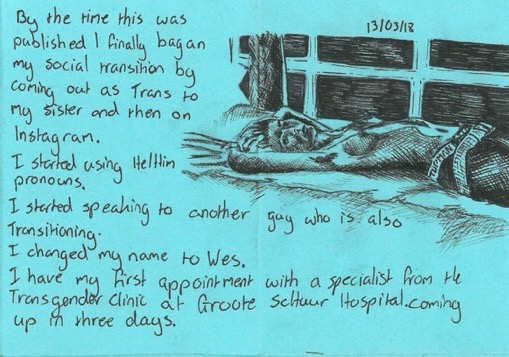 13/03/18
By the time this was
published I finally bagan
my social transition by
coming out as Trans to
my sister and then on
Instagram.
I started using He/Him
pronouns.
I started speaking to another guy who is also
Transitioning.
I changed my name to Wes.
I have my first appointment with a specialist from the
Transgender Clinic at Groote Schuur Hospital.coming
up in three days.